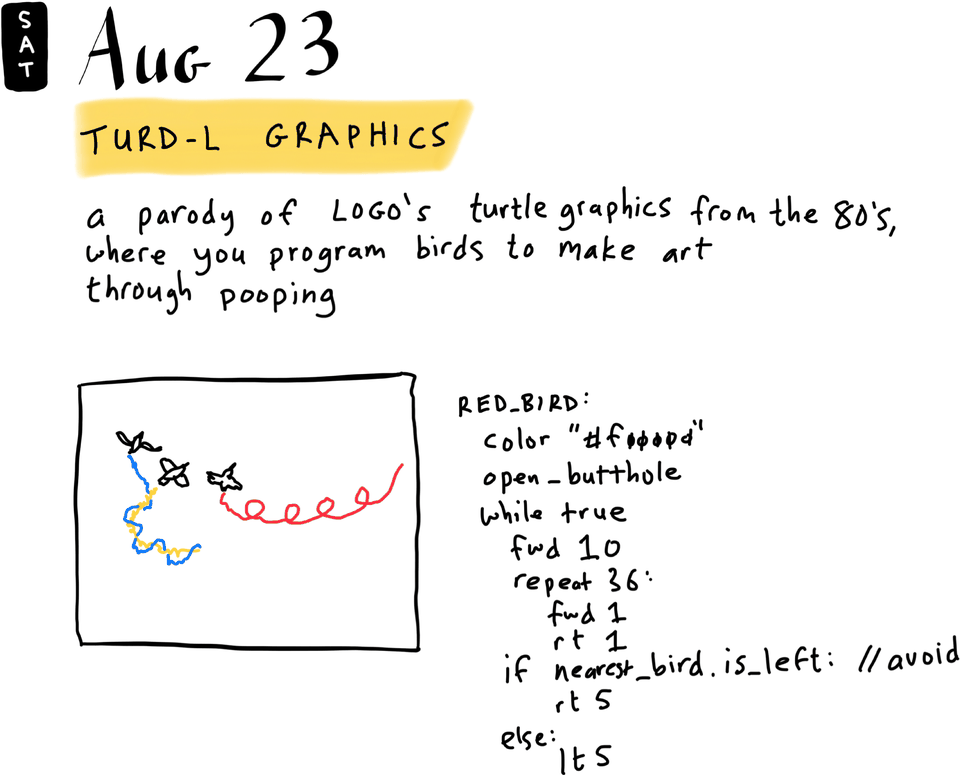 SAT
Aug 23
TURD-L GRAPHICS
a parody of LOGO's turtle graphics from the 80's,
where you program birds to make art
through pooping
RED_BIRD:
color "#f0000d"
open_butthole
while true
fwd 10
repeat 36:
fwd 1
rt 1
if nearest_bird.is_left: //avoid
rt 5
else:
lt 5